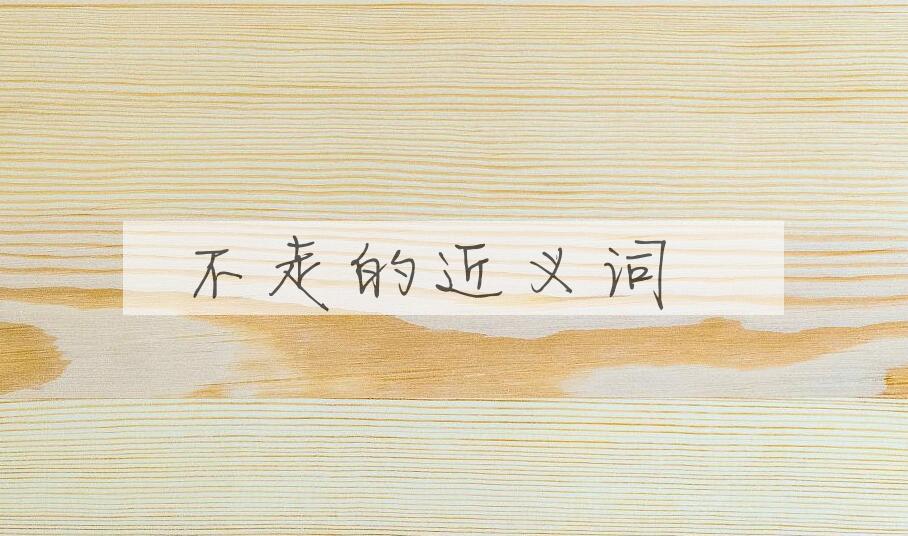 不走的近义词